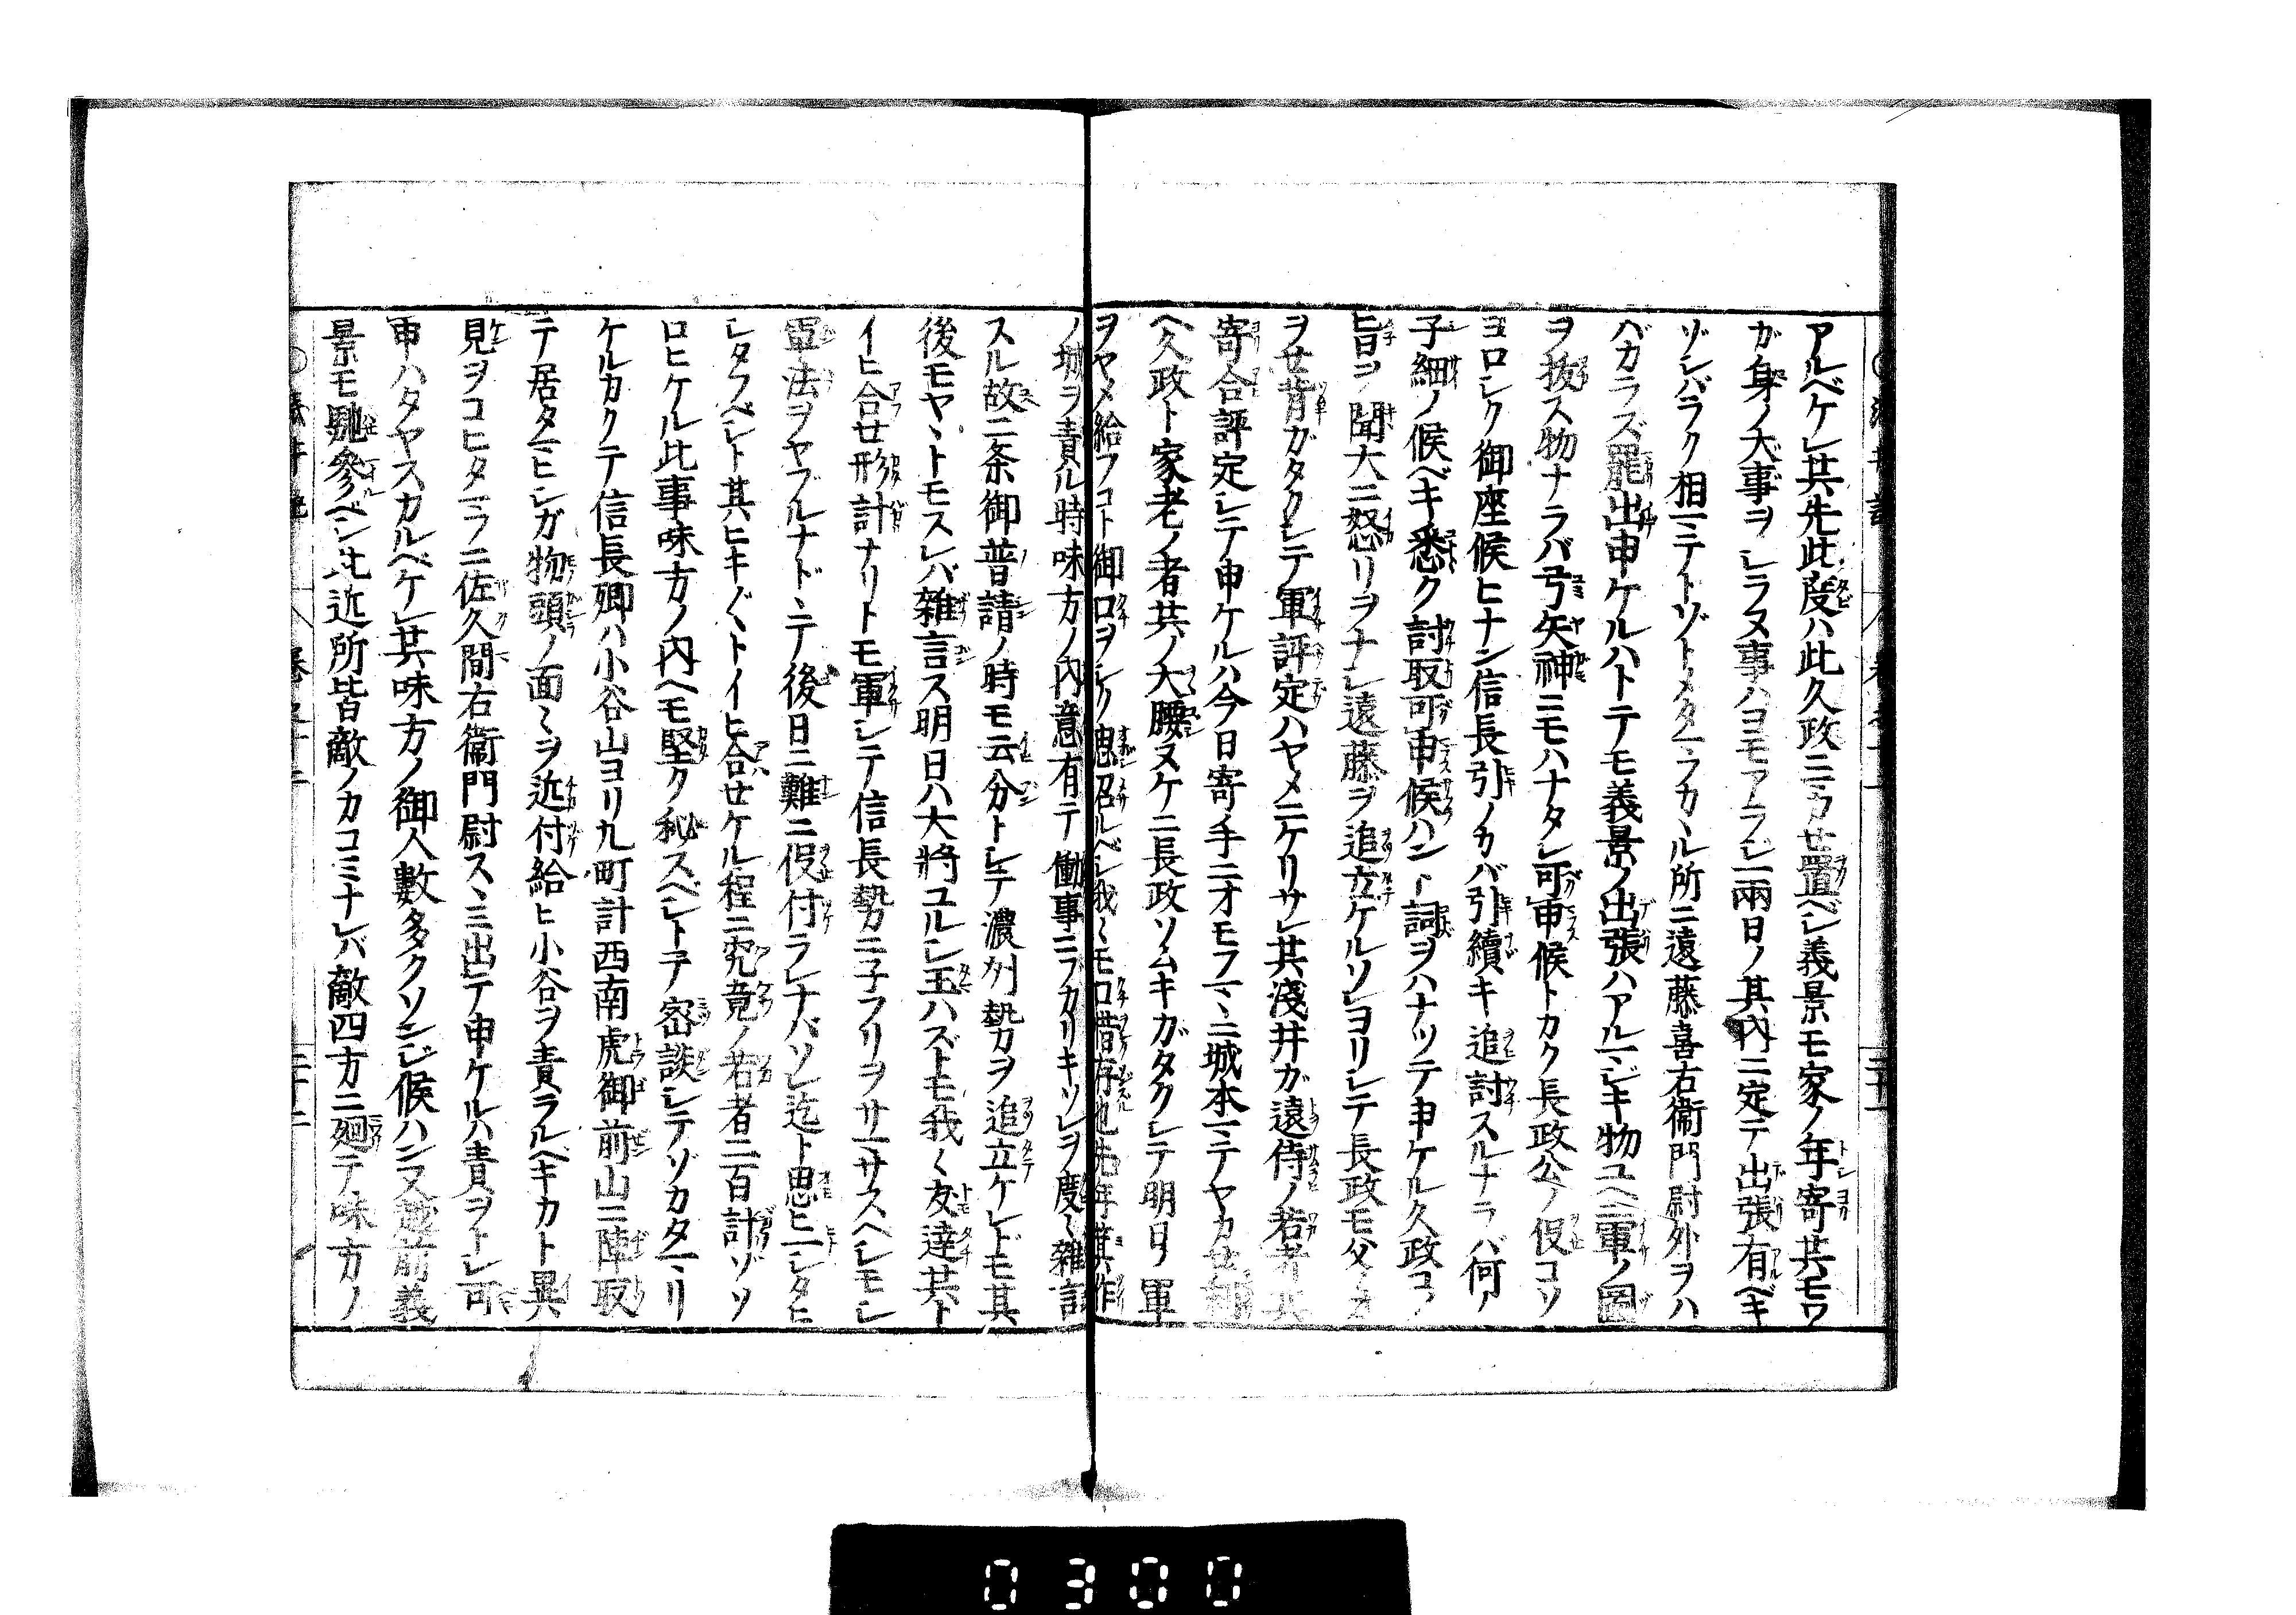 アルベケレ共先此度ハ此久政ニマカセ置ベシ義景モ家ノ年寄共モワ
ガ身ノ大事ヲシラヌ事ハヨモアラシ一兩日ノ其内ニ定テ出張有ベキ
ゾシバラク相マテトゾトヾメタマヲカヽル所ニ遠藤喜右衞門尉外ヲハ
バカラズ罷出申ケルハトテモ義景ノ出張ハアルマジキ物ユヘニ軍ノ圖
ヲ拔ス物ナラバ弓矢神ニモハナタレ可申候トカク長政公ノ仮コソ
ヨロシク御座候ヒナン信長引ノカバ引續キ追討スルナラバ何ノ
子細ノ候ベキ悉ク討取可申候ハント詞ヲハナツテ申ケル久政コノ
旨ヲ聞大ニ怒リヲナシ遠藤ヲ追立ケルソレヨリシテ長政モ父ノ
ヲセ背ガタクシテ軍評定ハヤメニケリサレ共淺井ガ遠侍ノ若者共
寄合評定シテ申ケルハ今日寄手ニオモフマヽニ城本マデヤカセ
ヘ久政ト家老ノ者共ノ大腰ヌケニ長政ソムキガタクシテ明日ノ軍
ヲヤメ給フコト御口ヲシク思召ルベシ我々モ口惜存也先年箕作
ノ城ヲ責ル時味方ノ内意有テ働事ニブカリキツレヲ度々雜言
スル故二条御普請ノ時モ云分トシテ濃州勢ヲ追立ケレドモ其
後モヤヽトモスレバ雜言ス明日ハ大將ユルシ玉ハズトモ我々友達共ト
イヒ合せ形計ナリトモ軍シテ信長勢ニ子フリヲサマサスヘシモシ
置法ヲヤブルナドヽテ後日ニ難ニ仮付ラレナバソレ迄ト思ヒマシタヒ
シタフベシト其ヒキ〴〵トイヒ合せケル程ニ究竟ノ若者二百計ゾソ
ロヒケル此事味方ノ内ヘモ堅ク秘スベシトテ密談シテゾカタマリ
ケルカクテ信長卿ハ小谷山ヨリ九町計西南虎御前山ニ陣取
テ居タマヒシガ物頭ノ面々ヲ近付給ヒ小谷ヲ責ラルベキカト異
見ヲコヒタマフニ佐久間右衞門尉スヽミ出テ申ケルハ責ヲトシ可
申ハタヤスカルベケレ共味方ノ御人數多クソンジ候ハン又越前義
景モ馳參ベシ此近所皆敵ノカコミナレバ敵四方ニ廻テ味方ノ